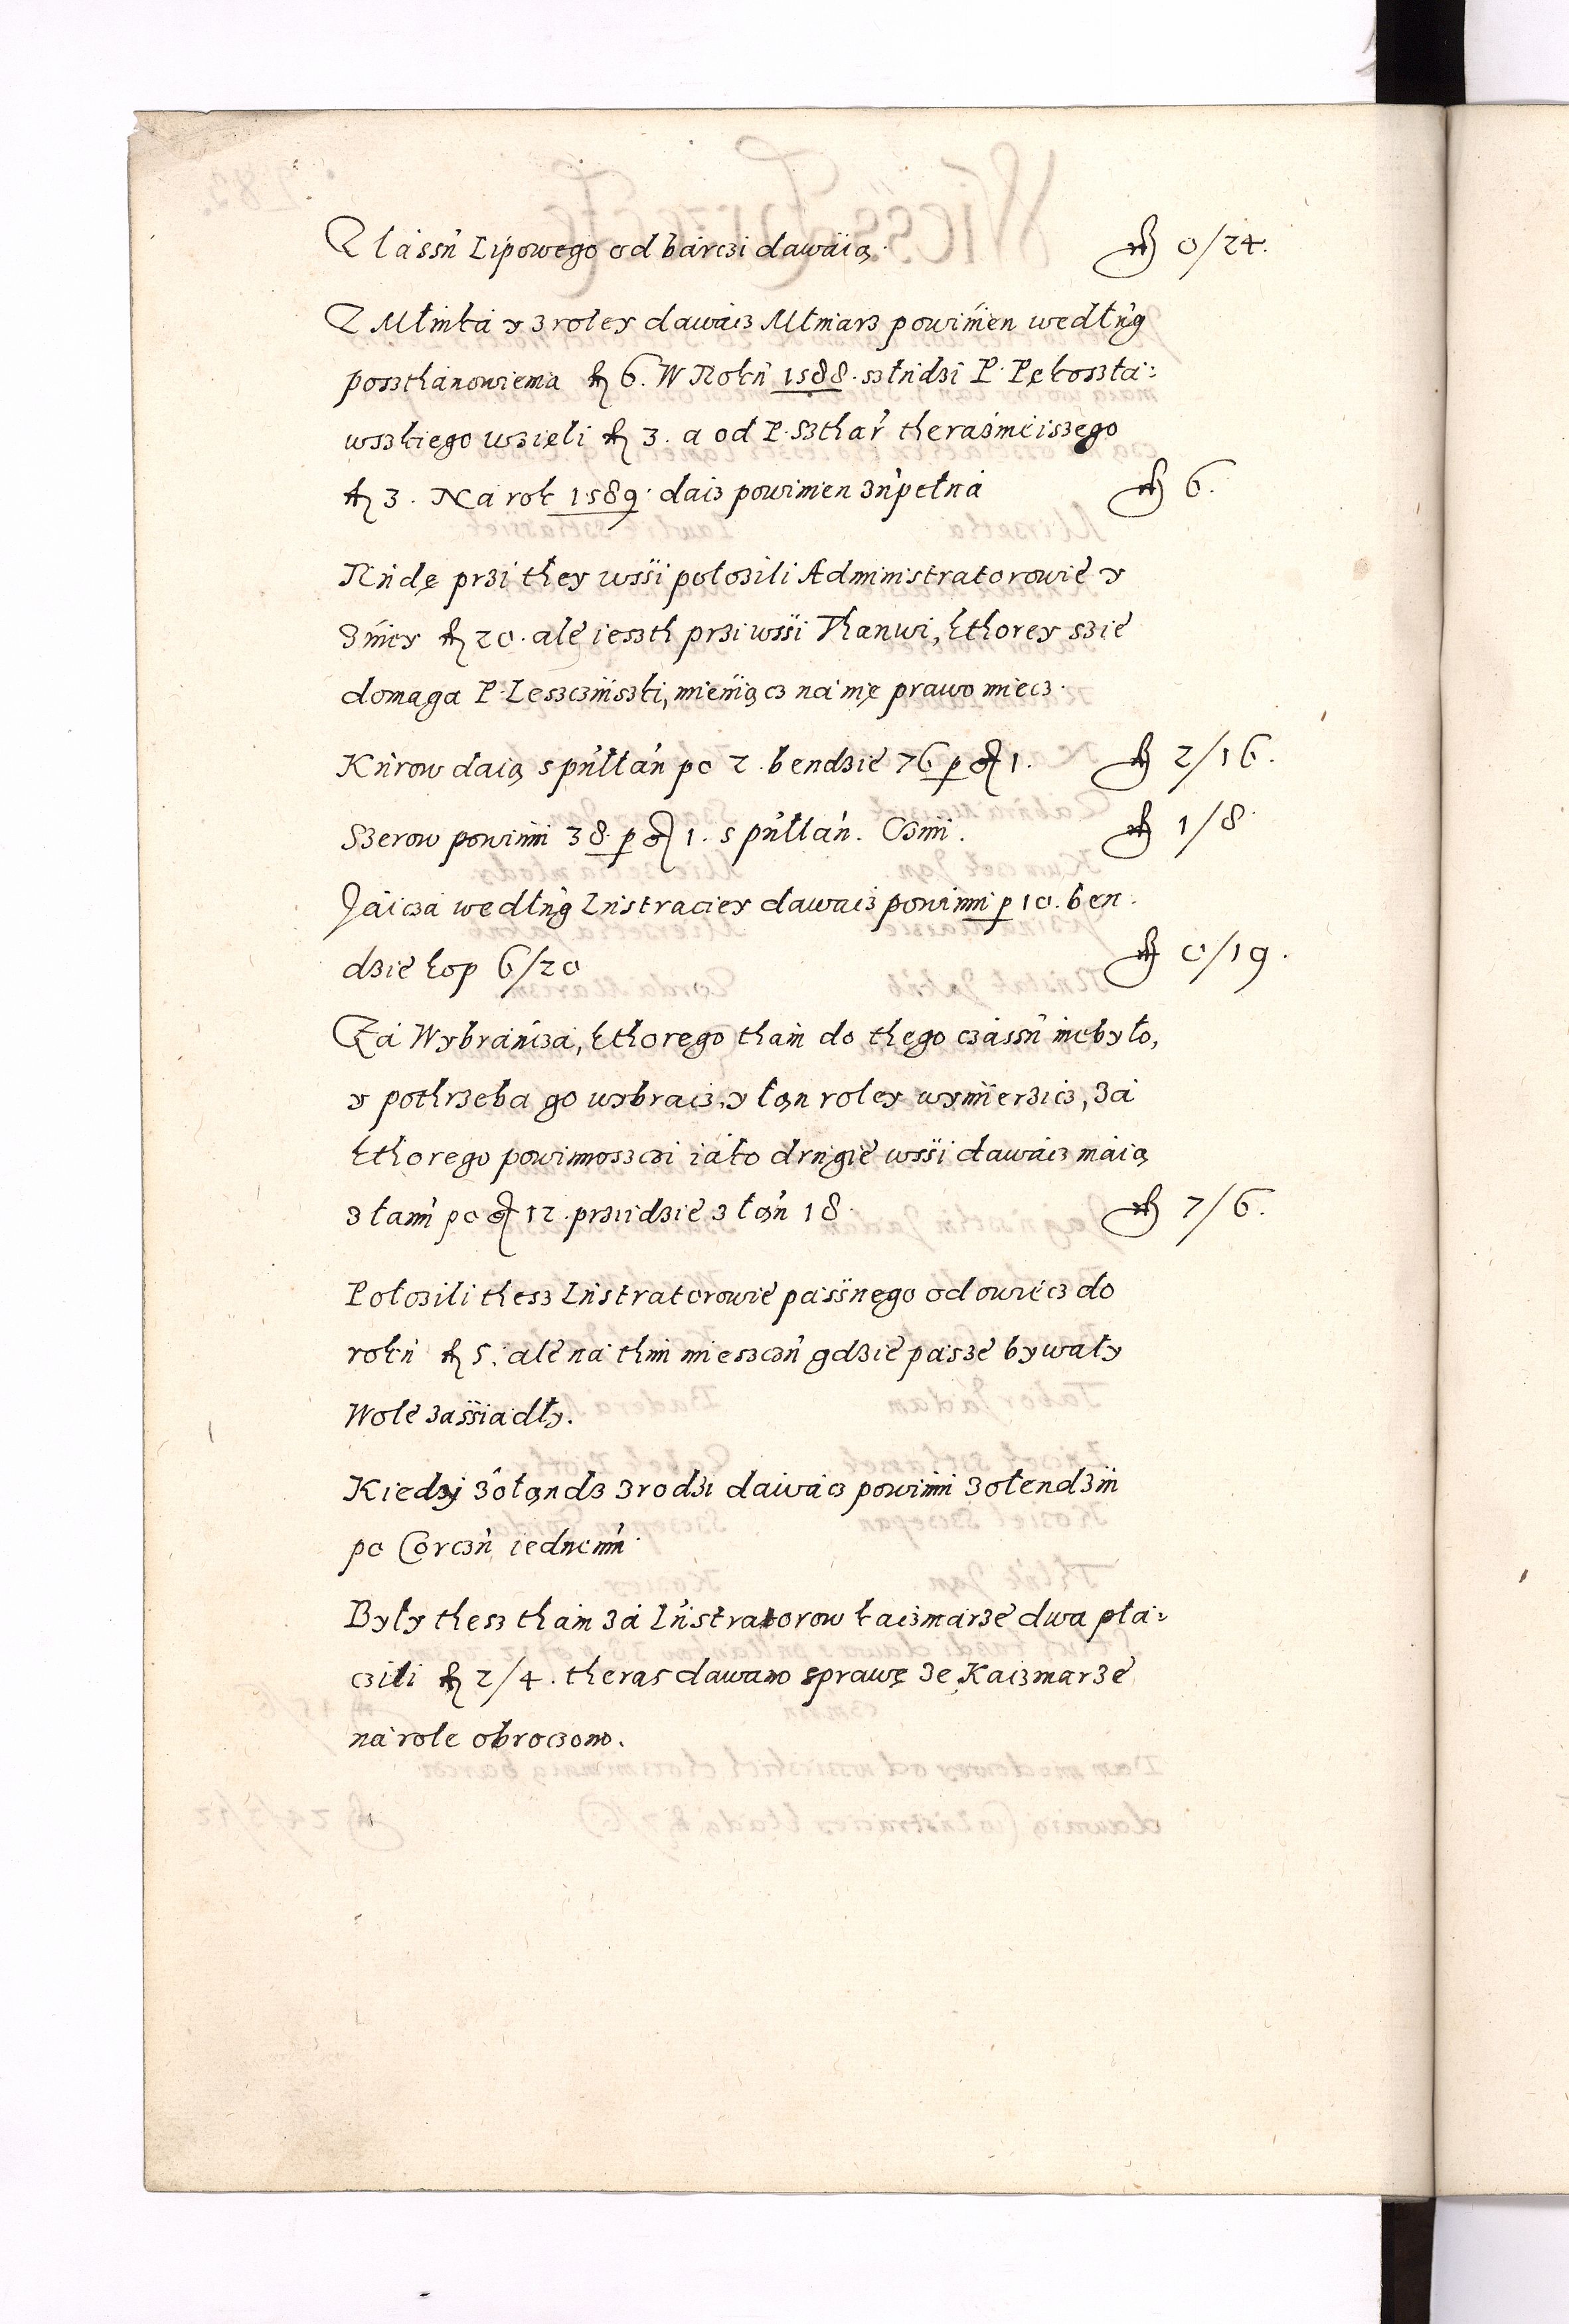 Z łassu Lipowego od barczi dawaią fl 0/24.
Z Młinka y z roley dawacz Młinarz powinien wedlug
poszthanowienia fl 6. W Roku 1588. szłudzi P. Pękoszła:
wszkiego wzięli fl 3. a od P. Szthar theraznieiszego
fl 3. Na rok 1589. dacz powinien zupełna fl 6.
Rudę przi they wssi położili Administratorowie y
z niey fl 20. ale ieszth przi wssi Thanwi, kthorey szie
domaga P. Leszczinszki, mieniącz na nię prawo miecz.
Kurow daią s pułłan po 2. bendzie 76 p gr 1. fl 2/16.
Szerow powinni 38 p gr 1. s pułłan. Czini. fl 1/8
Jaicza wedlug Lustraciey dawacz powinni p 10. ben:
dzie kop 6/20 fl 0/19.
Za Wybrańcza, kthorego tham do thego czassu niebyło,
y pothrzeba go wybracz, y łan roley wymierzicz, za
kthorego powinnoszczi iako drugie wssi dawacz maią
z łanu po gr 12. przidzie z łan 18 fl 7/6.
Położili thesz Lustratorowie passnego od owiecz do
roku fl 5. ale na thim mieszczu gdzie pasze bywały
Wole zassiadły.
Kiedy żołandz zrodzi dawacz powinni żołendzii
po Corczu iednemu.
Były thesz tham za Lustratorow kaczmarze dwa pła:
czili fl 2/4. theras dawano sprawę że Kaczmarze
na role obroczono.